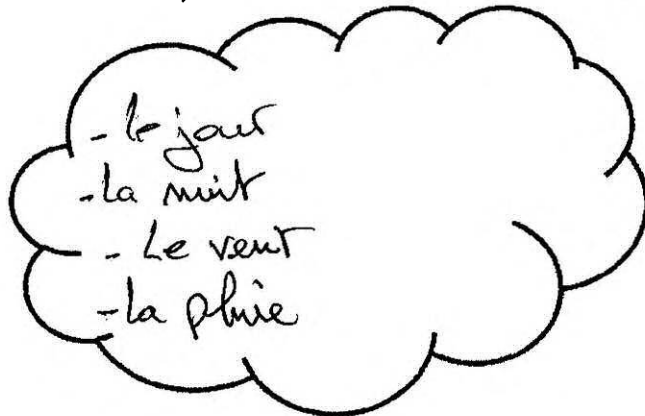 - le jour
- La nuit
- Le vent
- La pluie